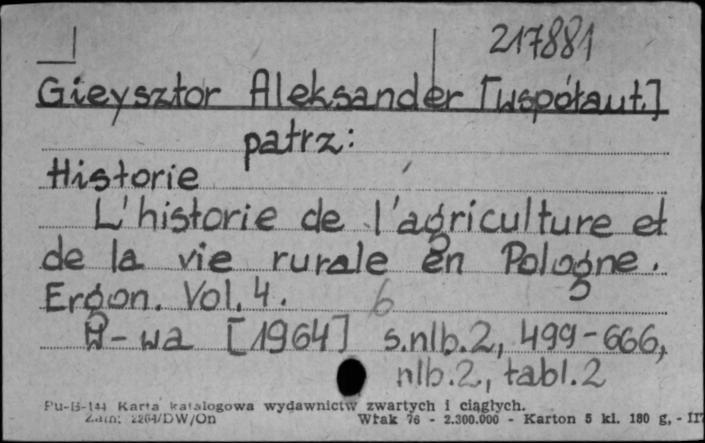 217881
Gieysztor Aleksander [współaut.]
patrz:
Historie
L'histoire de l'agriculture et
de la vie rurale en Pologne.
Ergon. Vol. 4.
6
W-wa [1964] s.nlb.2, 499-666,
nlb.2, tabl.2
Pu-B-144 Karta katalogowa wydawnictw zwartych i ciągłych.
Zam. 2264/DW/On Wrak 76 - 2.300.000 - Karton 5 kl. 180 g, - II